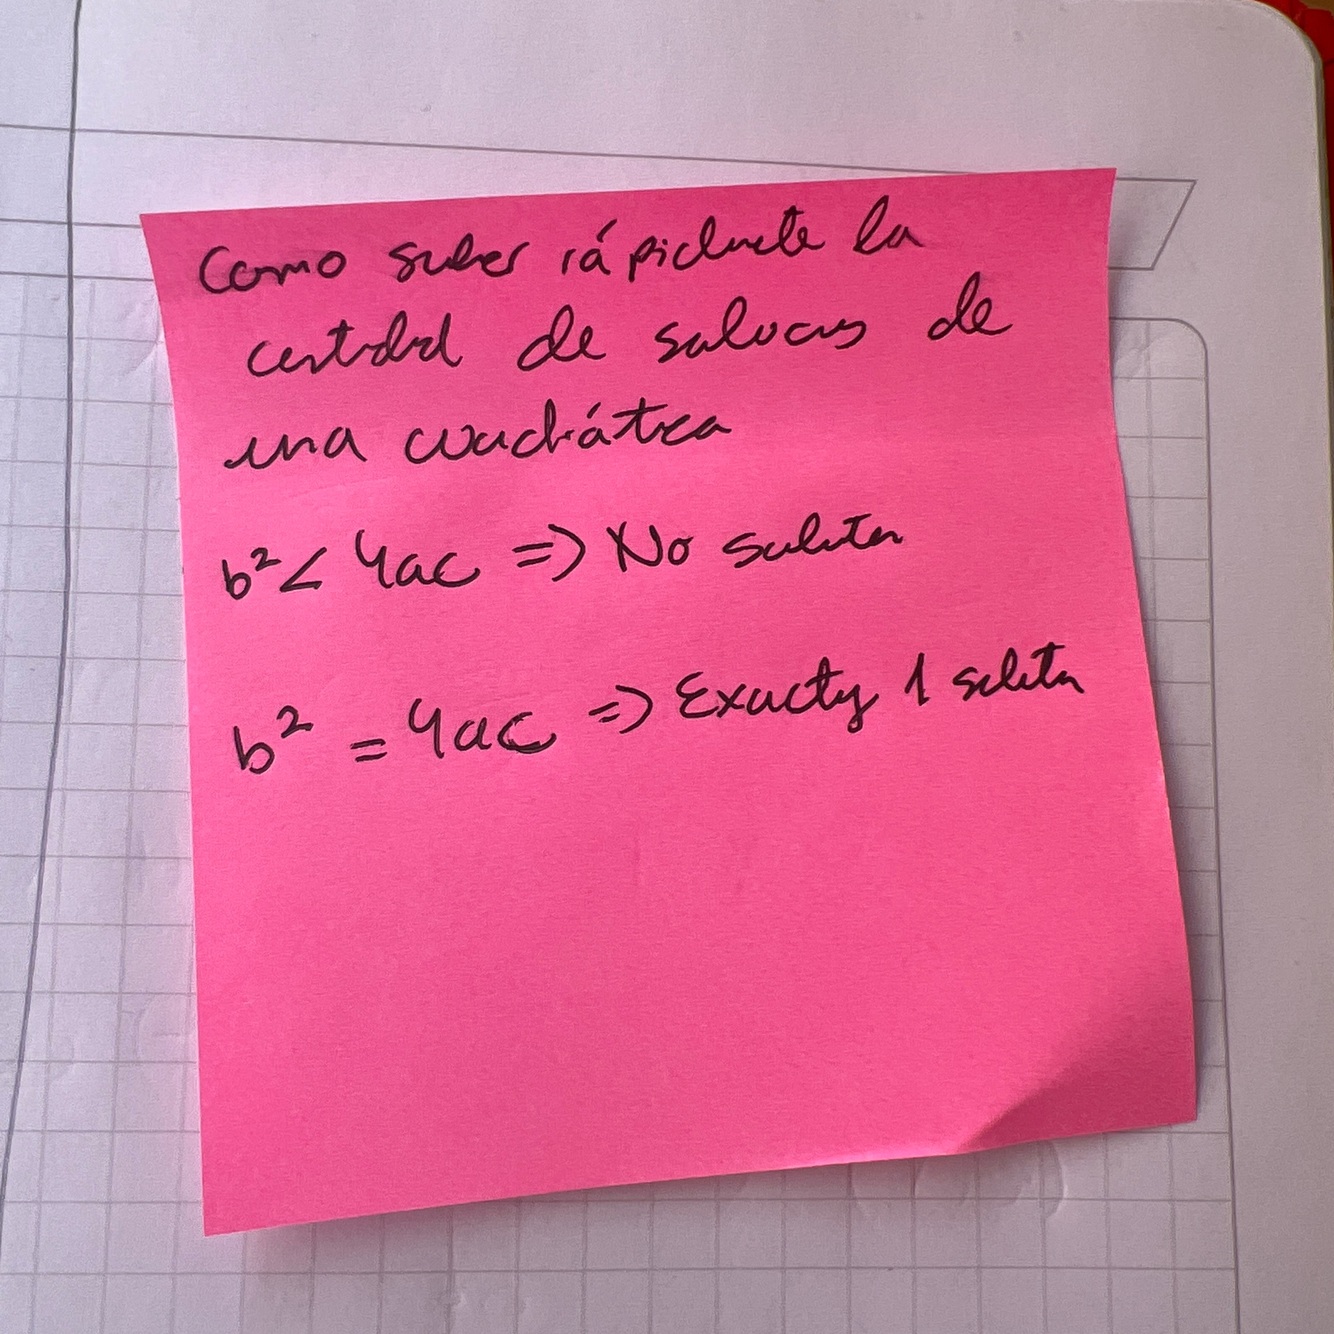 Como saber rápidamente la
cantidad de soluciones de
una cuadrática
b² < 4ac => No solution
b² = 4ac => Exactly 1 solution